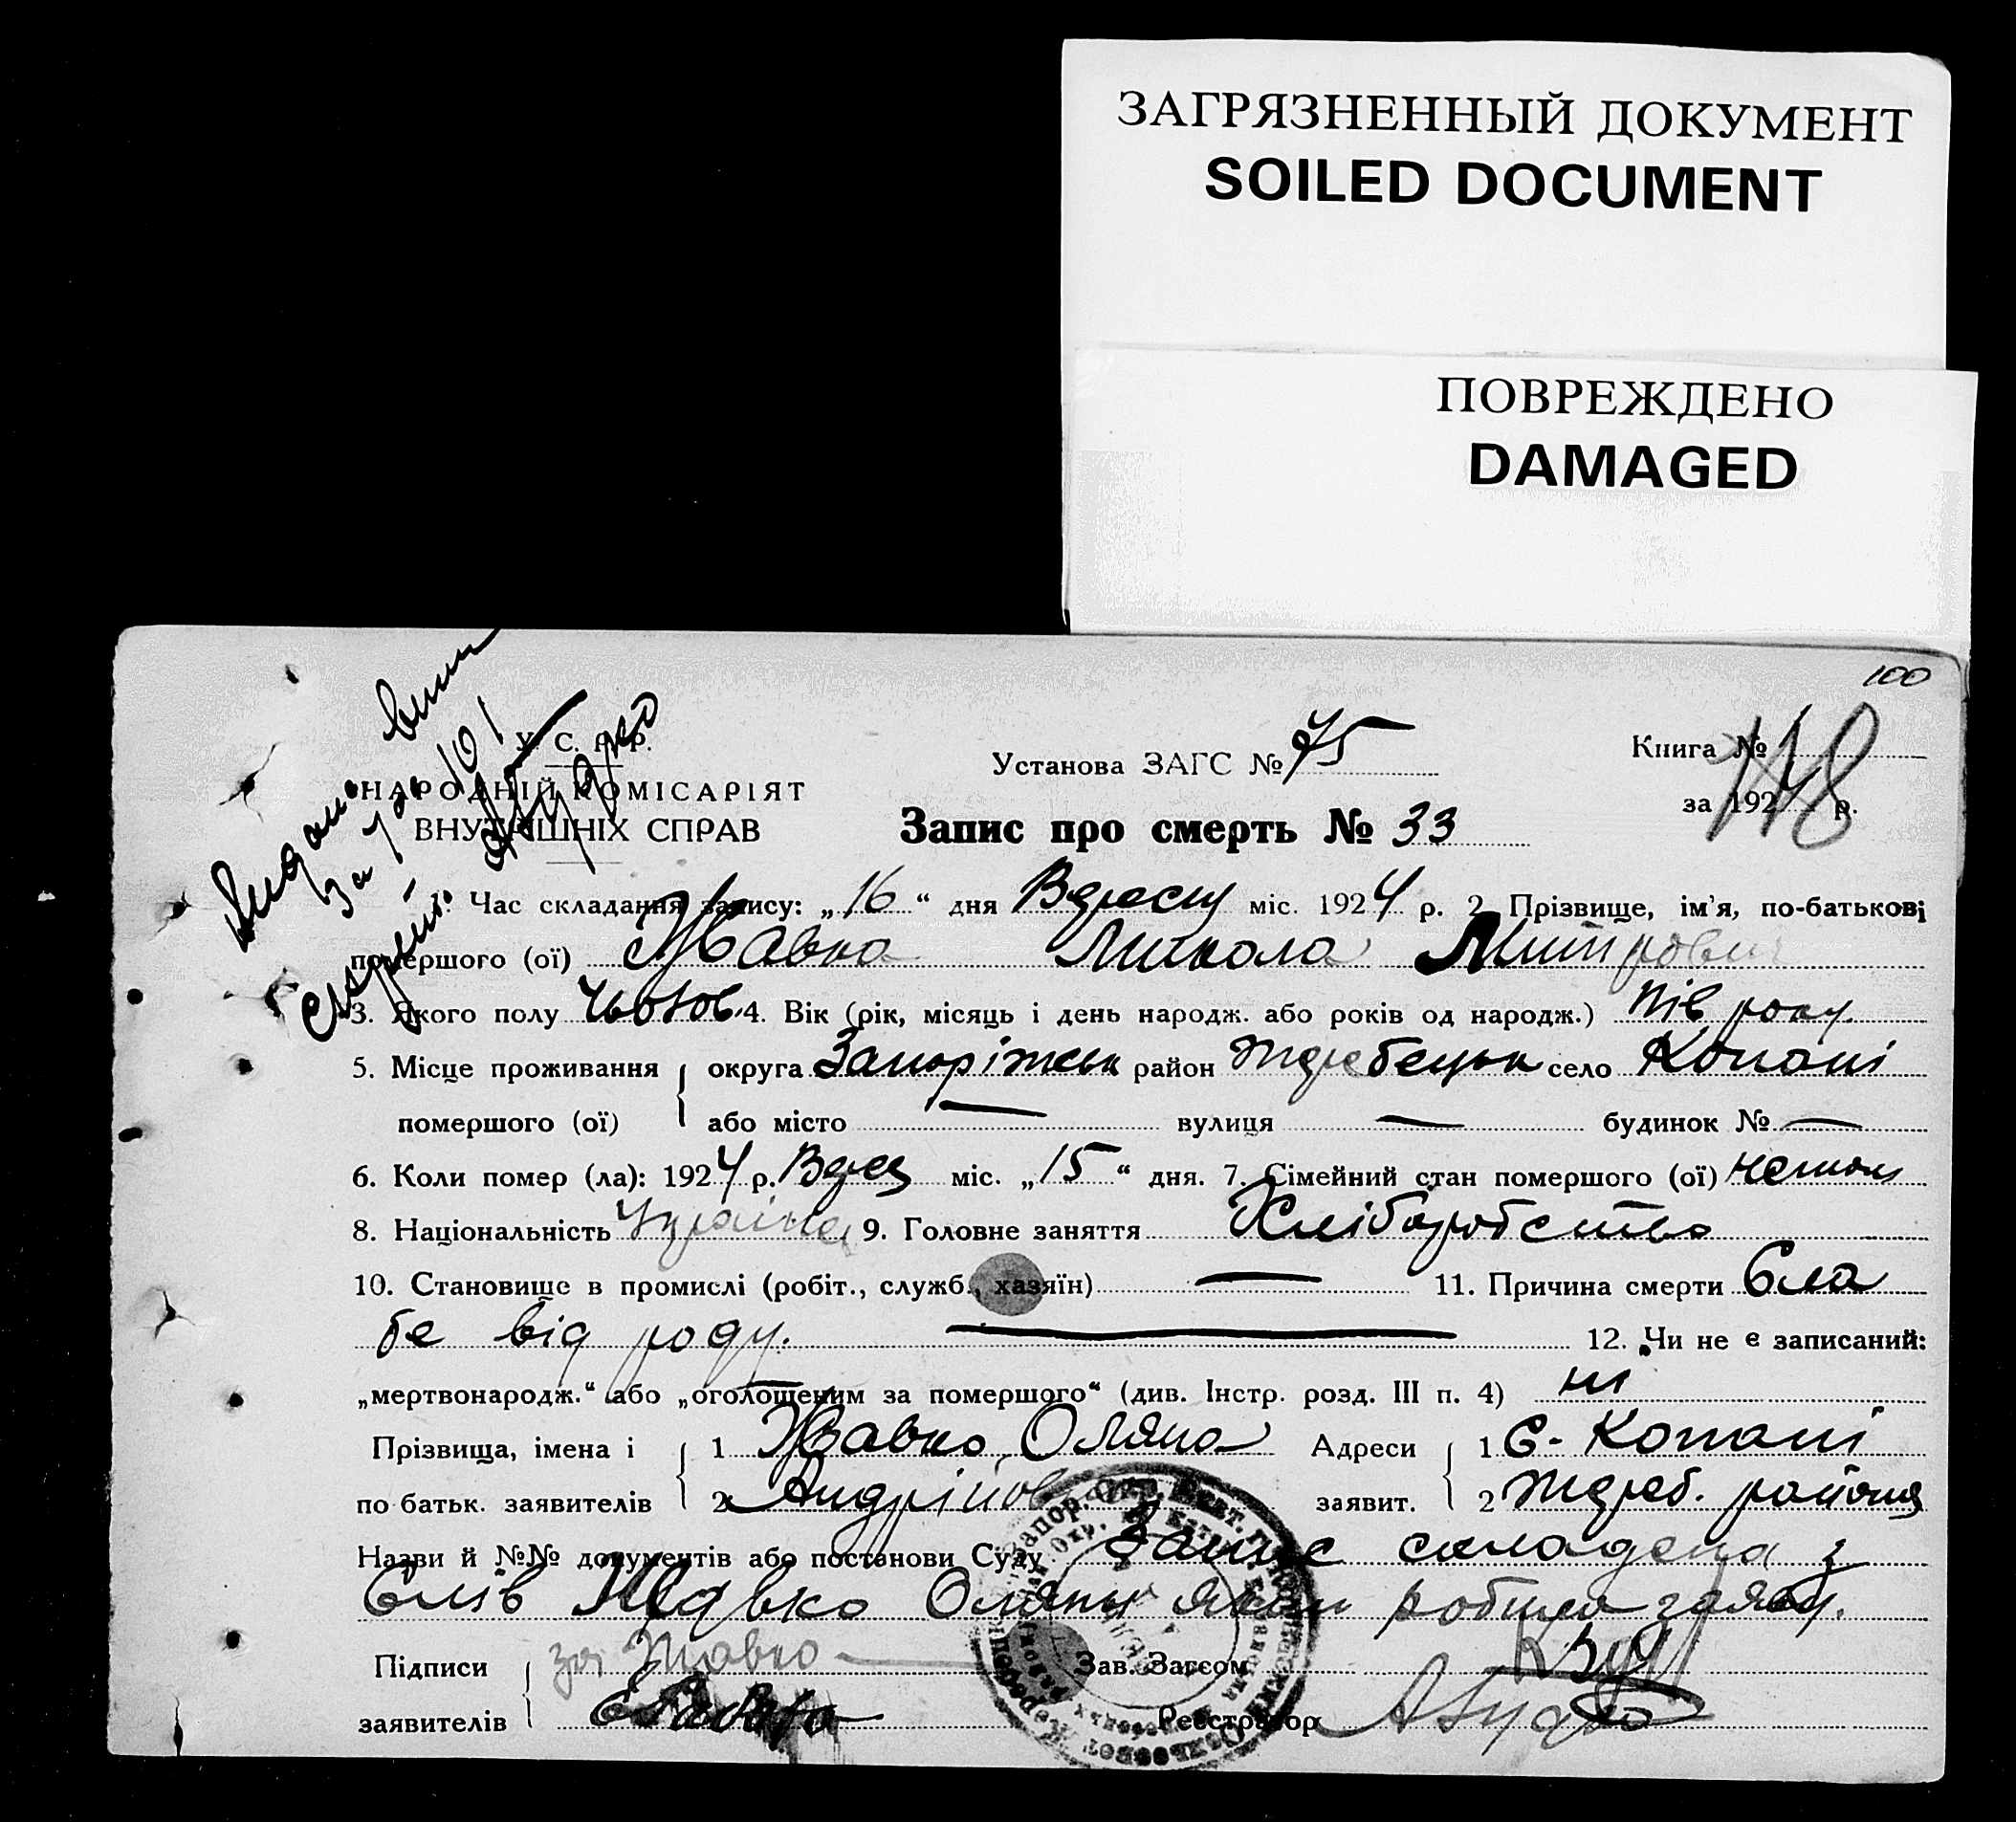 ЗАГРЯЗНЕННЫЙ ДОКУМЕНТ
SOILED DOCUMENT
ПОВРЕЖДЕНО
DAMAGED
100
У. С. Р. Р.
НАРОДНІЙ КОМІСАРІЯТ
ВНУТРІШНІХ СПРАВ
Установа ЗАГС № 75
Книга №
за 192 р.
148
Запис про смерть № 33
Час складання запису: „16“ дня Вересня міс. 1924 р. 2. Прізвище, ім'я, по-батькові
помершого (ої) Жавко Микола Митрович
3. Якого полу чолов. 4. Вік (рік, місяць і день народж. або років од народж.) пів року.
5. Місце проживання округа Запоріжськ район Жеребецьк село Копані
помершого (ої) або місто — вулиця — будинок № —
6. Коли помер (ла): 1924 р. Верес міс. „15“ дня. 7. Сімейний стан помершого (ої)
8. Національність Українец 9. Головне заняття Хліборобство
10. Становище в промислі (робіт., служб., хазяїн) — 11. Причина смерти Сла
бе від роду. — 12. Чи не є записаний:
„мертвонародж.“ або „оголошеним за помершого“ (див. Інстр. розд. III п. 4) ні
Прізвища, імена і 1 Жавко Оляна Адреси 1 С. Копані
по батьк. заявителів 2 Андріїов заявит. 2 Жереб. району
Назви й №№ документів або постанови Суду Запис складена з
слів Жавко Оляны якая робила заяву.
Підписи за Жавко — Зав. Загсом
заявителів Реєстратор